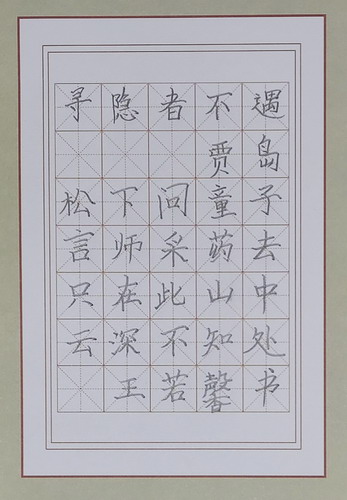 寻隐者不遇
贾岛
松下问童子
言师采药去
只在此山中
云深不知处
王若馨书